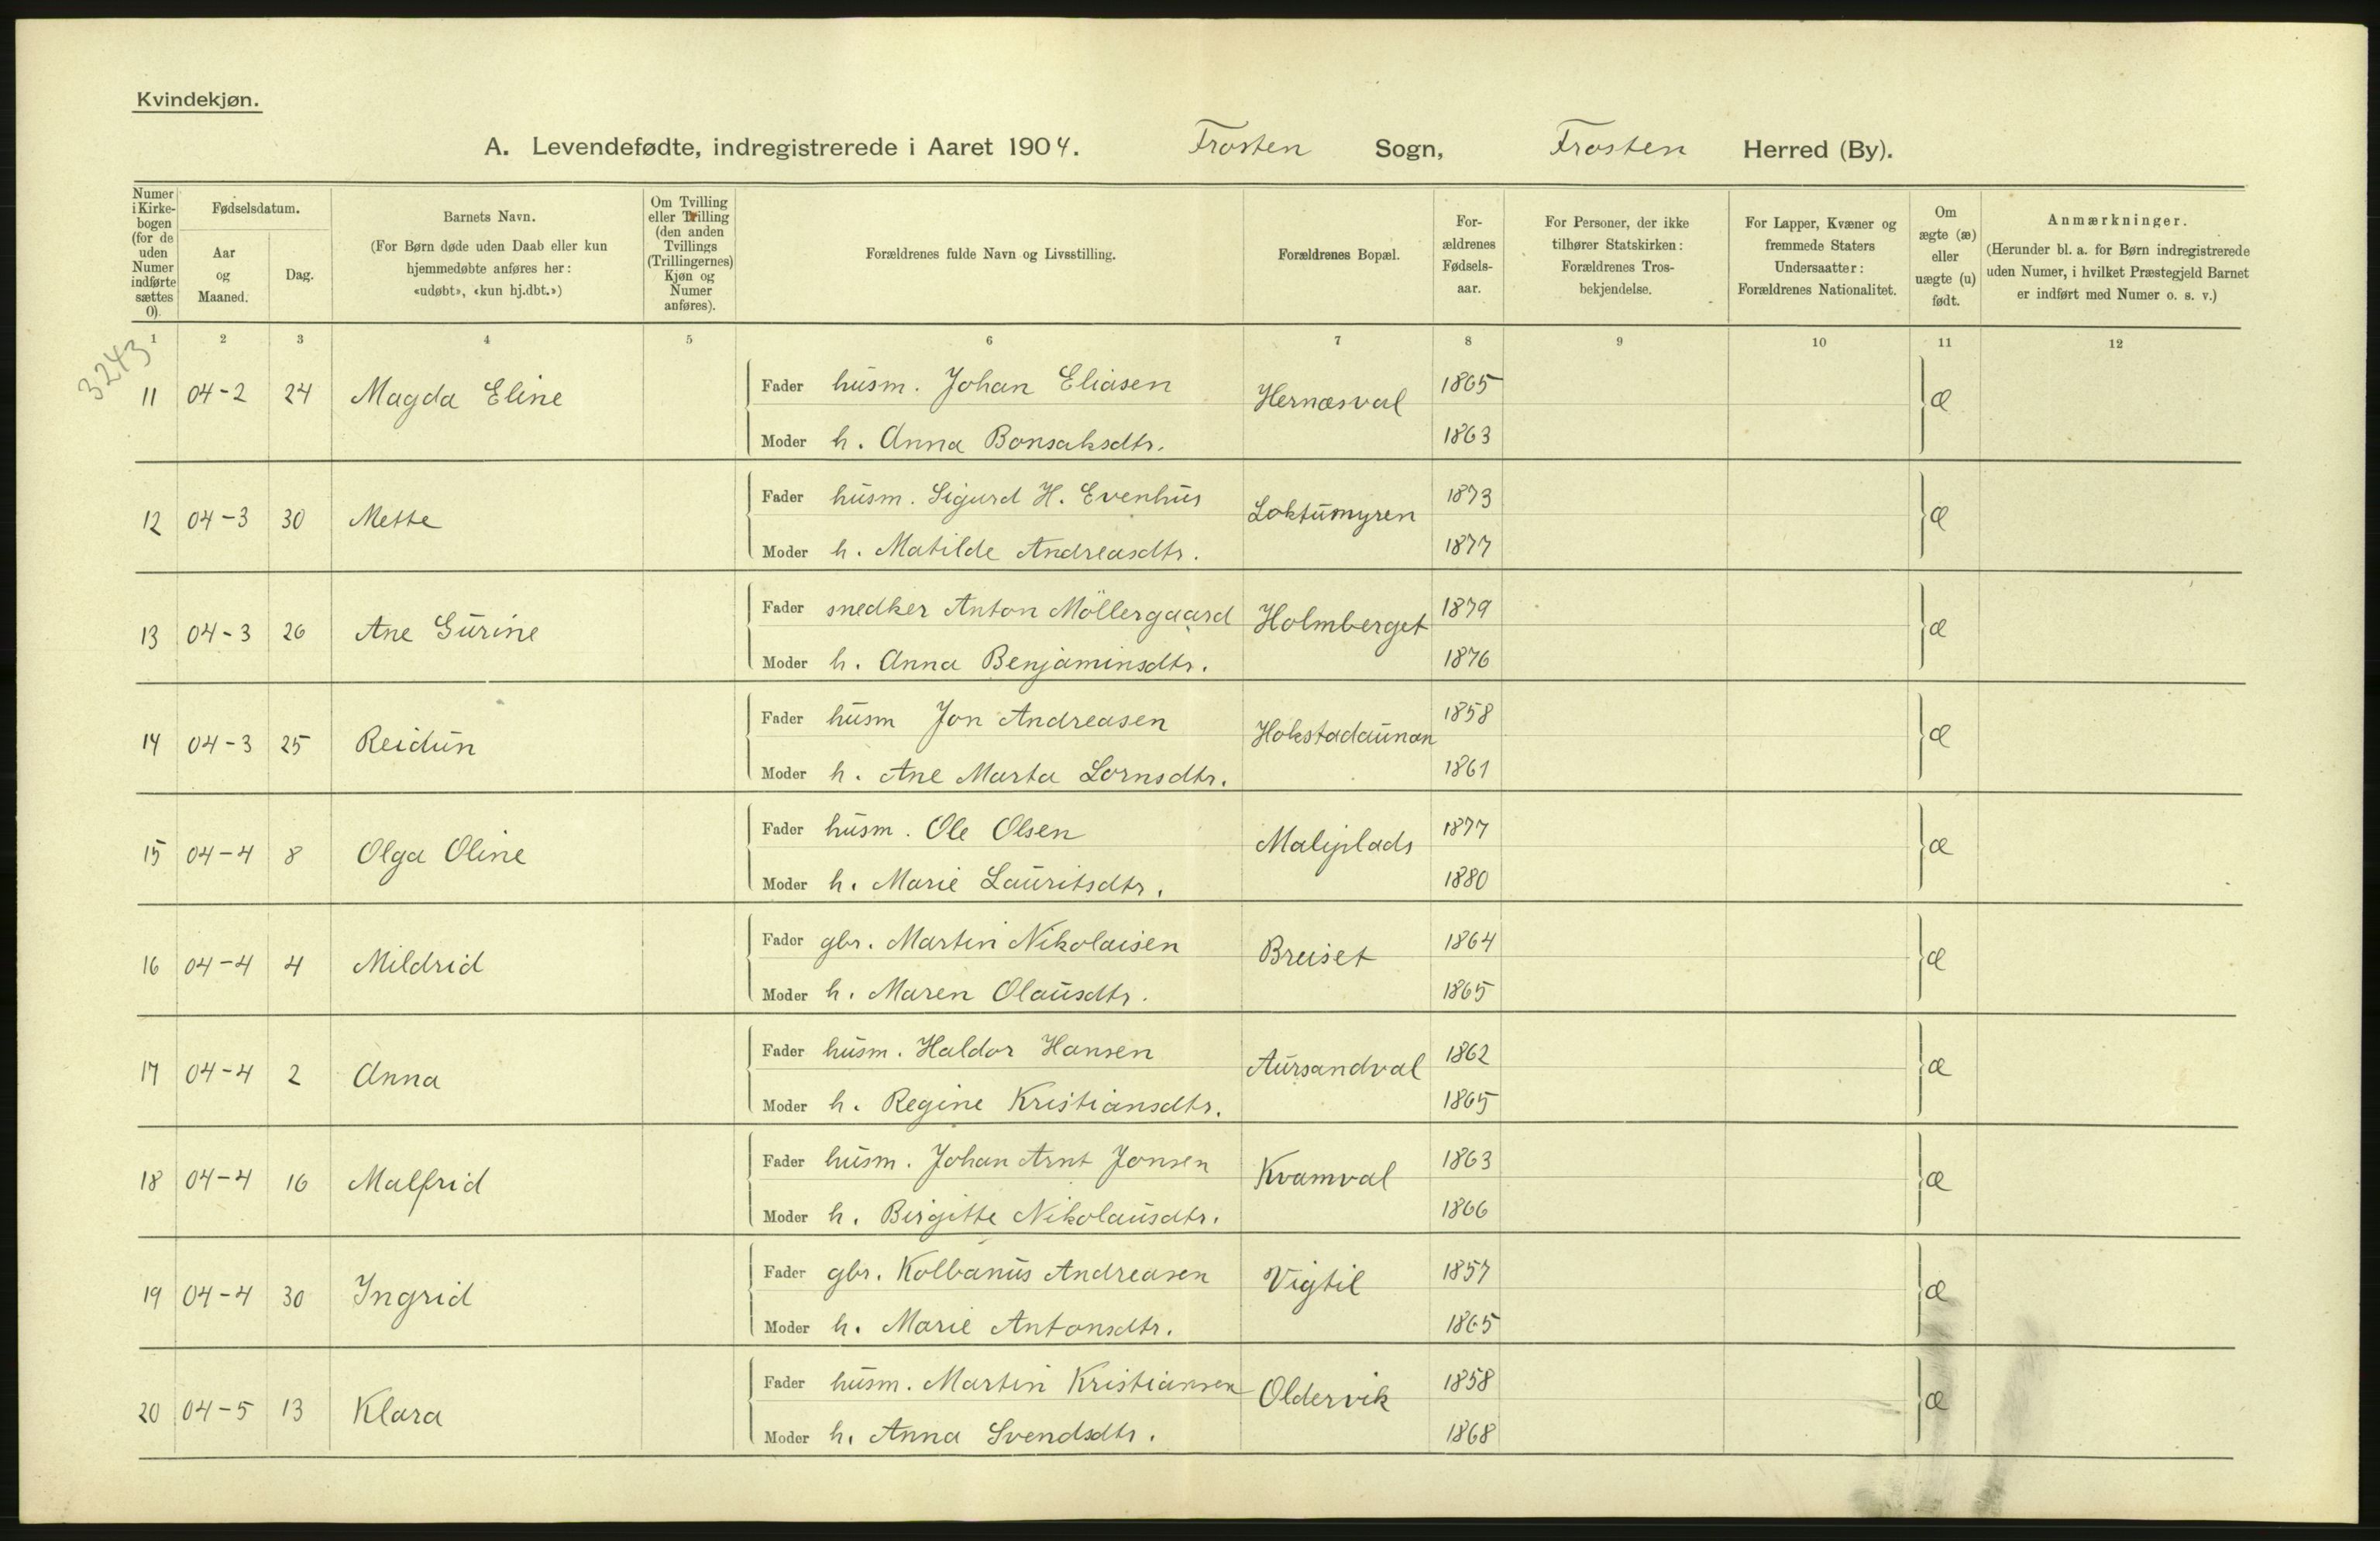 Kvindekjøn.
A. Levendefødte, indregistrerede i Aaret 1904. Frosten Sogn, Frosten Herred (By).
Numer i Kirkebogen (for de uden Numer indførte sættes 0).
Fødselsdatum.
Aar og Maaned.
Dag.
Barnets Navn.
(For Børn døde uden Daab eller kun
hjemmedøbte anføres her:
«udøbt», «kun hj.dbt.»)
Om Tvilling
eller Trilling
(den anden
Tvillings
(Trillingernes)
Kjøn og
Numer
anføres).
Forældrenes fulde Navn og Livsstilling.
Forældrenes Bopæl.
For-
ældrenes
Fødsels-
aar.
For Personer, der ikke
tilhører Statskirken:
Forældrenes Tros-
bekjendelse.
For Lapper, Kvæner og
fremmede Staters
Undersaatter:
Forældrenes Nationalitet.
Om
ægte (æ)
eller
uægte (u)
født.
Anmærkninger.
(Herunder bl. a. for Børn indregistrerede
uden Numer, i hvilket Præstegjeld Barnet
er indført med Numer o. s. v.)
1 2 3 4 5 6 7 8 9 10 11 12
3243
11 04-2 24 Magda Eline Fader husm. Johan Eliasen Hernæsval 1865 æ
Moder h. Anna Bonsaksdtr. 1863
12 04-3 30 Mette Fader husm. Sigurd H. Evenhus Loktumyren 1873 æ
Moder h. Matilde Andreasdtr. 1877
13 04-3 26 Ane Gurine Fader snedker Anton Möllergaard Holmberget 1879 æ
Moder h. Anna Benjaminsdtr. 1876
14 04-3 25 Reidun Fader husm Jon Andreasen Hokstadaunan 1858 æ
Moder h. Ane Marta Lornsdtr. 1861
15 04-4 8 Olga Oline Fader husm. Ole Olsen 1877 æ
Moder h. Marie Lauritsdtr. 1880
16 04-4 4 Mildrid Fader gbr. Martin Nikolaisen Breiset 1864 æ
Moder h. Maren Olausdtr. 1865
17 04-4 2 Anna Fader husm. Haldor Hansen Aursandval 1862 æ
Moder h. Regine Kristiansdtr. 1865
18 04-4 16 Malfrid Fader husm. Johan Arnt Jonsen Kvamval 1863 æ
Moder h. Birgitte Nikolausdtr. 1866
19 04-4 30 Ingrid Fader gbr. Kolbanus Andreasen Vigtil 1857 æ
Moder h. Marie Antonsdtr. 1865
20 04-5 13 Klara Fader husm. Martin Kristiansen Oldervik 1858 æ
Moder h. Anna Svendsdtr. 1868